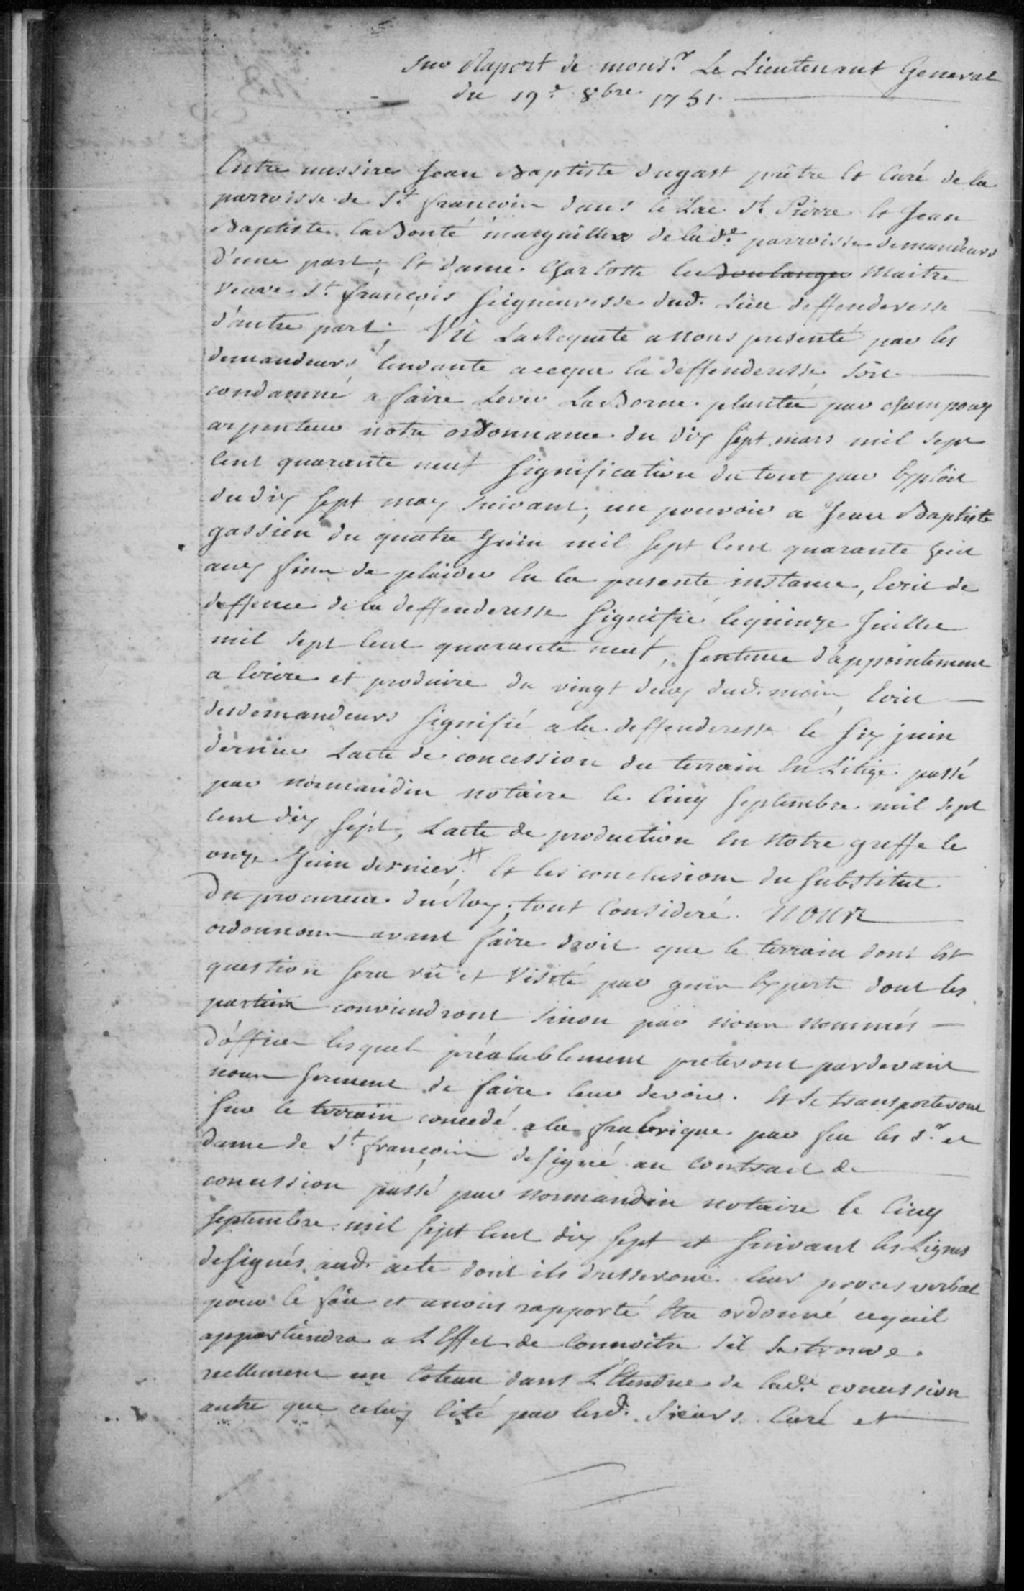 sur Raport de mons.r Le Lieutenant General
du 19.e 8bre. 1751.
Entre messire Jean Baptiste dugast prêtre et Curé de la
parroisse de St françois dans le Lac St Pierre et Jean
Baptiste laBonté marguillier de lad.e parroisse demandeurs
d'une part, Et dame Charlotte le Boulanger Maitre
veuve St françois Seigneuresse dud. Lieu deffenderesse
d'autre part. Vû LaRequete a nous presenté par les
demandeurs tendante aceque la deffenderesse soit
condamné a faire Lever LaBorne plantée par champoux
arpenteur notre ordonnance du dix sept mars mil sept
Cent quarante neuf Signification du tout par Exploit
du dix sept may Suivant, un pouvoir a Jean Baptiste
gassien du quatre Juin mil Sept Cent quarante huit
aux fins de plaider En la presente instance, Ecrit de
deffense de la deffenderesse Signifié lequinze Juillet
mil sept Cent quarante neuf, Sentence d'appointement
a Ecrire et produire du vingt deux dud. mois, Ecrit
desdemandeurs Signifié a la deffenderesse le Six juin
dernier Lacte de concession du terrain En Litige passé
par normandin notaire le Cinq Septembre mil Sept
Cent dix Sept, Lacte de production En Notre greffe le
onze Juin dernier # Et les conclusions du Substitut
Du procureur duRoy; tout Consideré. NOUS
ordonnons avant faire droit que le terrain dont Est
question sera vû et Visité par gens Experts dont les
parties conviendront sinon par nous nommés
d'office lesquels préalablement preteront pardevant
nous Serment de faire leur devoir. Et Se transporteront
Sur le terrain concedé a la frabrique par feu les Sr et
dame de St françois designé au Contract de
concession passé par normandin notaire le Cinq
Septembre mil Sept Cent dix Sept et Suivant les Lignes
designés aud. acte dont ils dresseront leur proces verbal
pour le fait et anous rapporté Etre ordonné cequil
appartiendra a L'Effet de Connoitre s'il se trouve
reellement un Coteau dans L'Etendue de lad.e concession
autre que celuy Cité par lesd. Sieurs Curé et